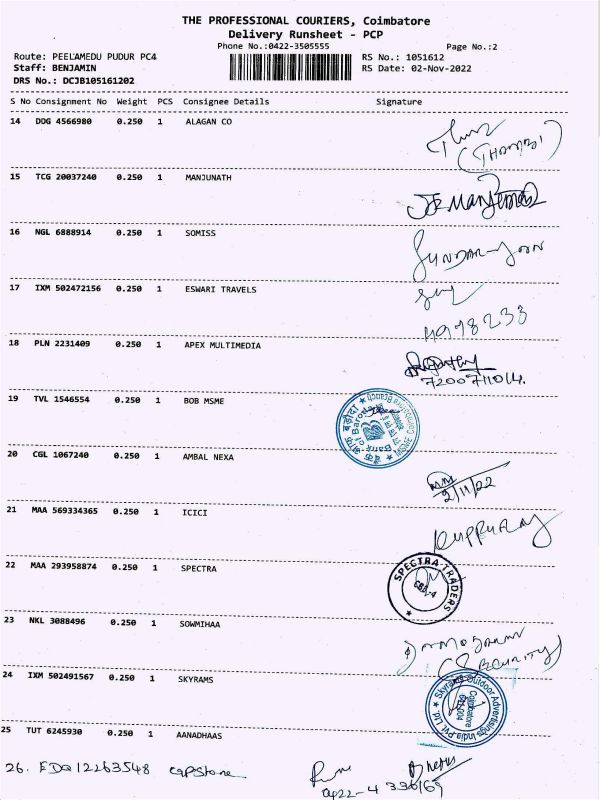 THE PROFESSIONAL COURIERS, Coimbatore
Delivery Runsheet - PCP
Phone No.:0422-3505555
Page No.:2
Route: PEELAMEDU PUDUR PC4
RS No.: 1051612
Staff: BENJAMIN
RS Date: 02-Nov-2022
DRS No.: DCJB105161202
S No Consignment No Weight PCS Consignee Details Signature
14 DDG 4566980 0.250 1 ALAGAN CO
15 TCG 20037240 0.250 1 MANJUNATH
16 NGL 6888914 0.250 1 SOMISS
17 IXM 502472156 0.250 1 ESWARI TRAVELS
18 PLN 2231409 0.250 1 APEX MULTIMEDIA
7200711014.
19 TVL 1546554 0.250 1 BOB MSME
बैंक ऑफ़ बड़ौदा Bank of Baroda
20 CGL 1067240 0.250 1 AMBAL NEXA
2/11/22
21 MAA 569334365 0.250 1 ICICI
22 MAA 293958874 0.250 1 SPECTRA
SPECTRA TRADERS
CBE-4
23 NKL 3088496 0.250 1 SOWMIHAA
24 IXM 502491567 0.250 1 SKYRAMS
Skyrams Outdoor Advertisings India Pvt. Ltd.
Coimbatore
641 004
25 TUT 6245930 0.250 1 AANADHAAS
26. EDQ12263548 capstone